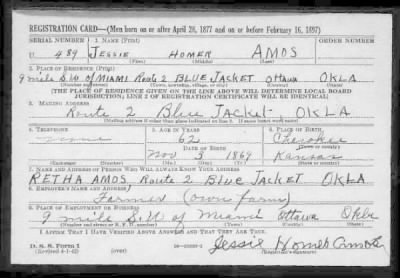 REGISTRATION CARD—(Men born on or after April 28, 1877 and on or before February 16, 1897)
SERIAL NUMBER 1. NAME (Print) ORDER NUMBER
U 489 JESSIE HOMER AMOS
(First) (Middle) (Last)
2. PLACE OF RESIDENCE (Print)
9 mile S.W of MIAMI Route 2 BLUE JACKET Ottawa OKLA
(Number and street) (Town, township, village, or city) (County) (State)
[THE PLACE OF RESIDENCE GIVEN ON THE LINE ABOVE WILL DETERMINE LOCAL BOARD
JURISDICTION; LINE 2 OF REGISTRATION CERTIFICATE WILL BE IDENTICAL]
3. MAILING ADDRESS
Route 2 Blue Jacket OKLA
[Mailing address if other than place indicated on line 2. If same insert word same]
4. TELEPHONE 5. AGE IN YEARS 6. PLACE OF BIRTH
none 62 Cherokee
DATE OF BIRTH (Town or county)
Nov 3 1869 Kansas
(Exchange) (Number) (Mo.) (Day) (Yr.) (State or country)
7. NAME AND ADDRESS OF PERSON WHO WILL ALWAYS KNOW YOUR ADDRESS
RETHA AMOS Route 2 Blue JACKET OKLA
8. EMPLOYER'S NAME AND ADDRESS
Farmer (own farm)
9. PLACE OF EMPLOYMENT OR BUSINESS
9 mile S.W of Miami Ottawa Okla
(Number and street or R. F. D. number) (Town) (County) (State)
I AFFIRM THAT I HAVE VERIFIED ABOVE ANSWERS AND THAT THEY ARE TRUE.
D. S. S. Form 1
(Revised 4-1-42) (over) Jessie Homer Amos
(Registrant's signature)